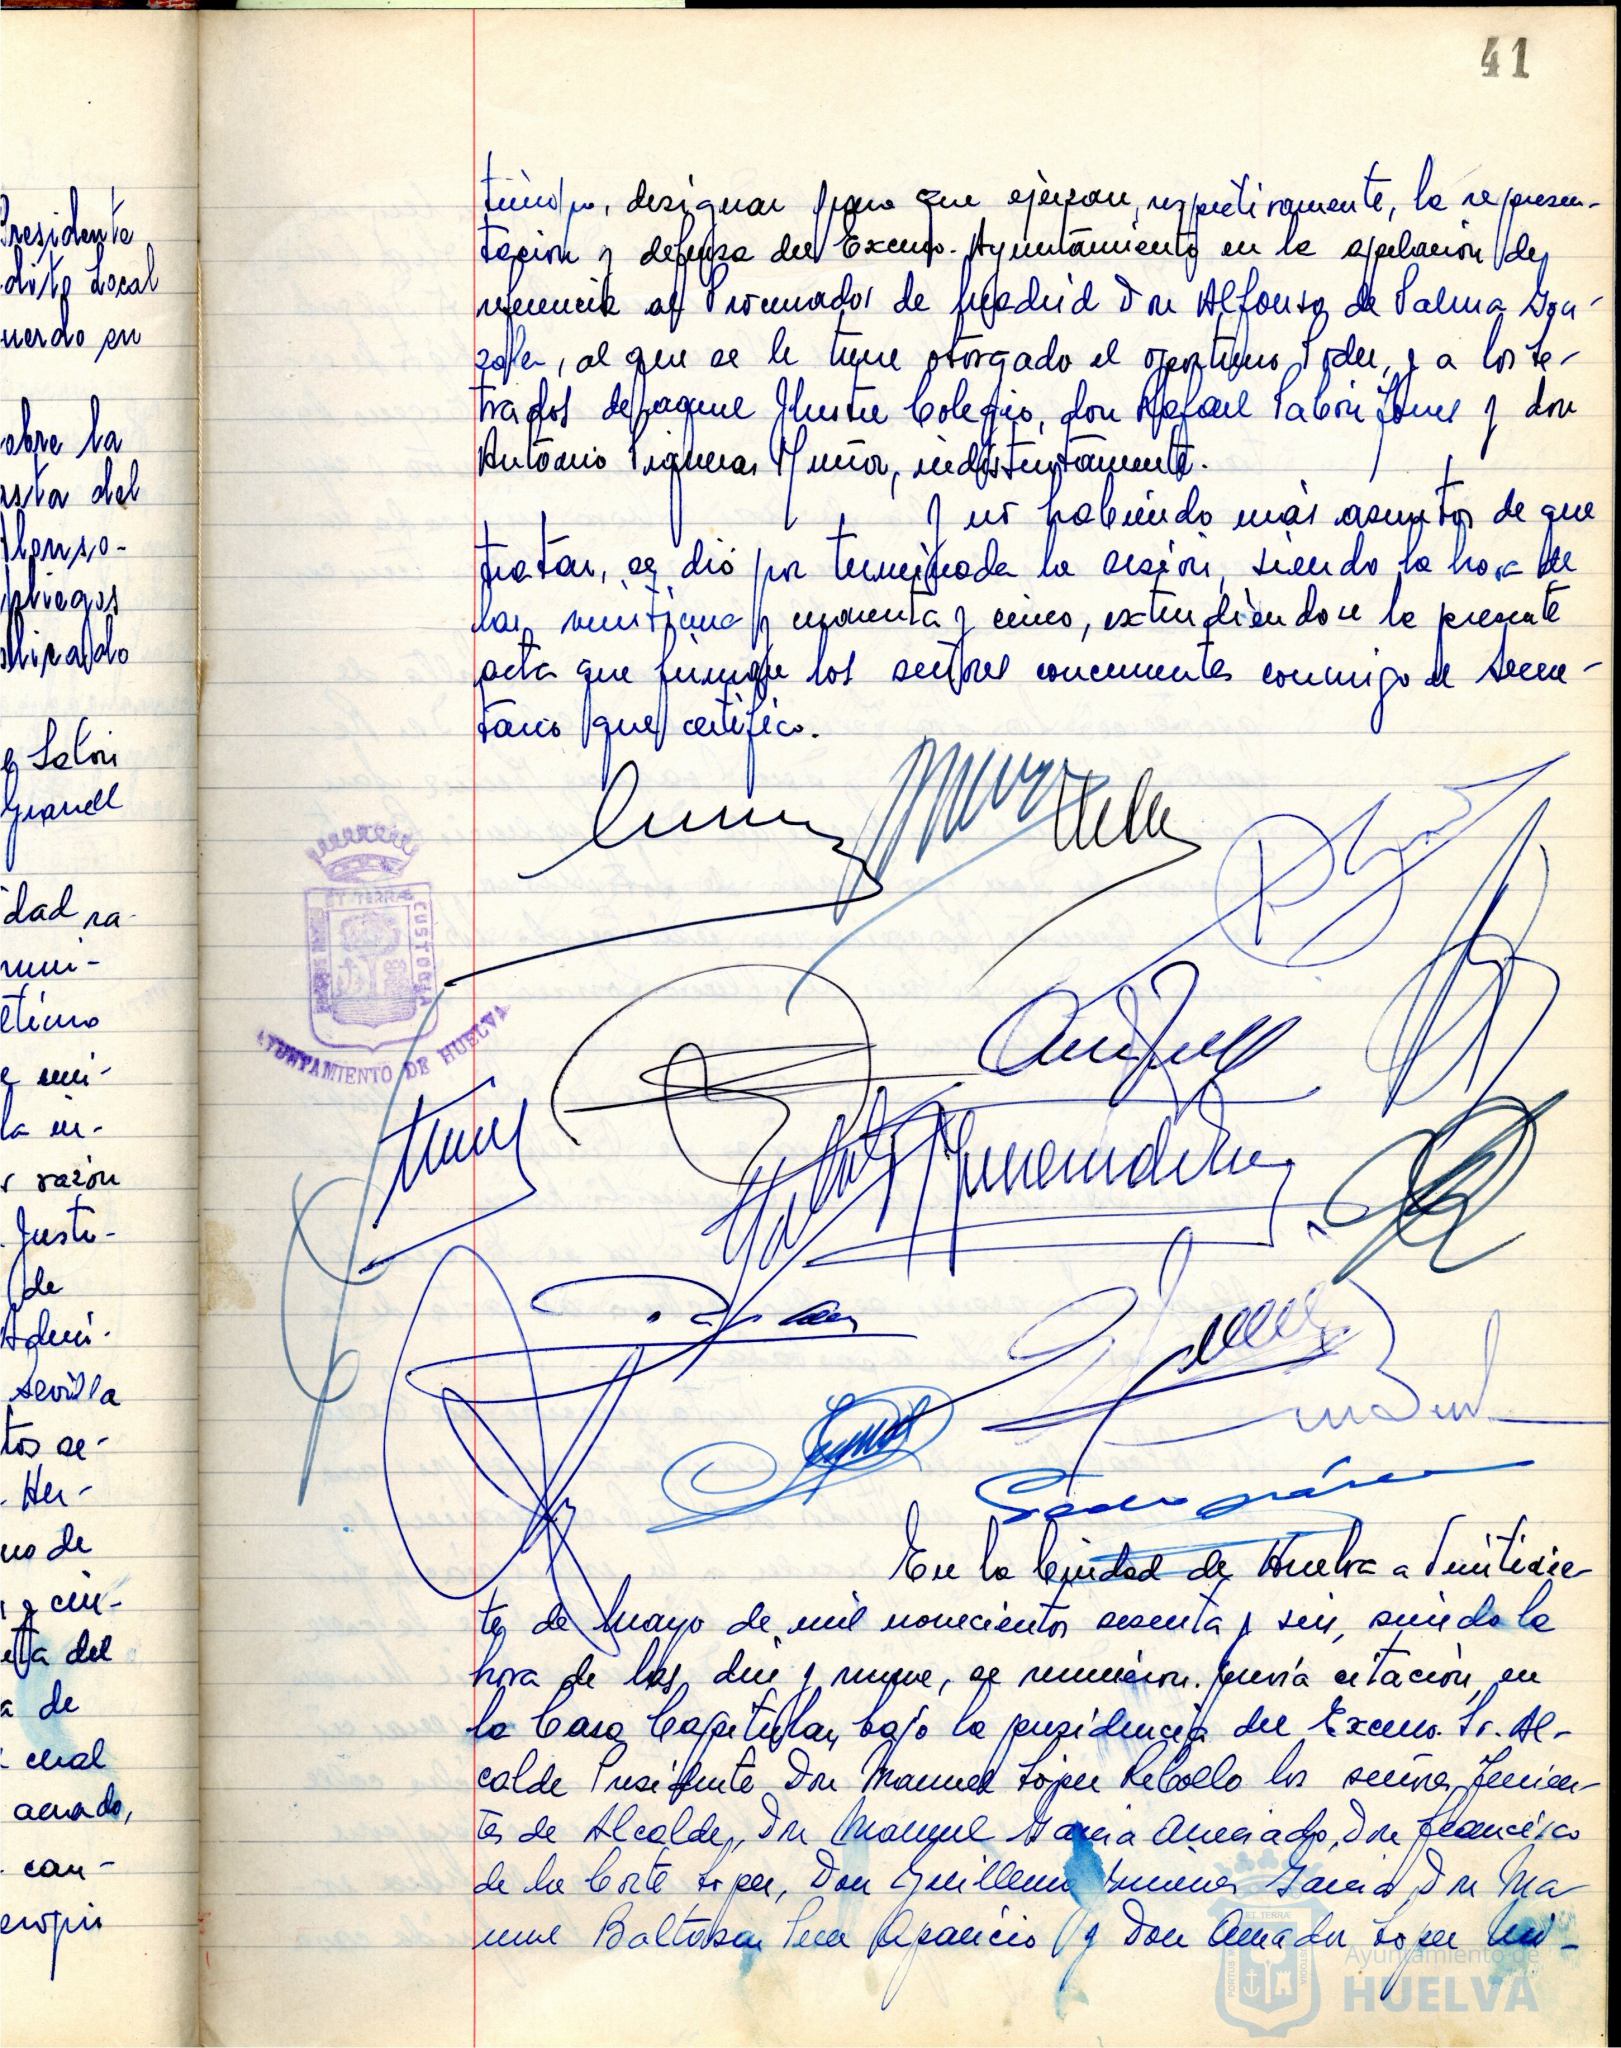 41
Presidente
dito Local
uerdo en
obre la
asta del
Alonso-
pliegos
plicado
Grandl
idad ra-
muni-
la in-
r razón
Justi-
de
Admi-
Sevilla
tos se-
Her-
no de
y cin-
eta del
a de
cual
can-
tiempo, designar para que ejerzan, respectivamente, la represen-
tación y defensa del Excmo. Ayuntamiento en la apelación de
referencia al Procurador de Madrid Don Alfonso de Palma Gon-
zález, al que se le tiene otorgado el oportuno Poder, y a los Le-
trados de aquel Ilustre Colegio, don Rafael Pabón y don
Antonio Piqueras Muñoz, indistintamente.
Y no habiendo más asuntos de que
tratar, se dió por terminada la sesión, siendo la hora de
las veintiuna y cuarenta y cinco, extendiéndose la presente
acta que firman los señores concurrentes conmigo el Secre-
tario que certifico.
ET TERRÆ CUSTODIA
AYUNTAMIENTO DE HUELVA
En la Ciudad de Huelva a Veintisie-
te de Mayo de mil novecientos sesenta y seis, siendo la
hora de las diez y nueve, se reunieron previa citación, en
la Casa Capitular, bajo la presidencia del Excmo. Sr. Al-
calde Presidente Don Manuel López Rebollo los señores Tenien-
tes de Alcalde, Don Manuel García Don Francisco
de la Corte López, Don Guillermo Jiménez García, Don Ma-
nuel Baltasar Pece Aparicio y Don Amador López
PORTUS MARIS ET TERRÆ CUSTODIA
Ayuntamiento de
HUELVA